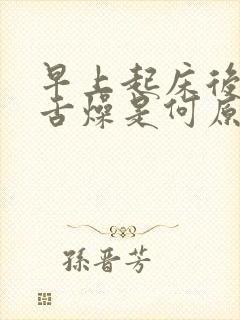 早上起床後
舌燥是何原
孫晋芳